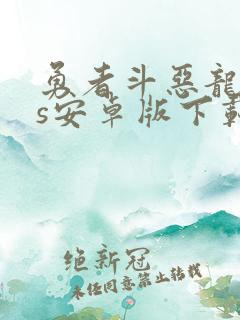 勇者斗惡龍
s安卓版下載
绝新冠
未经同意禁止转载